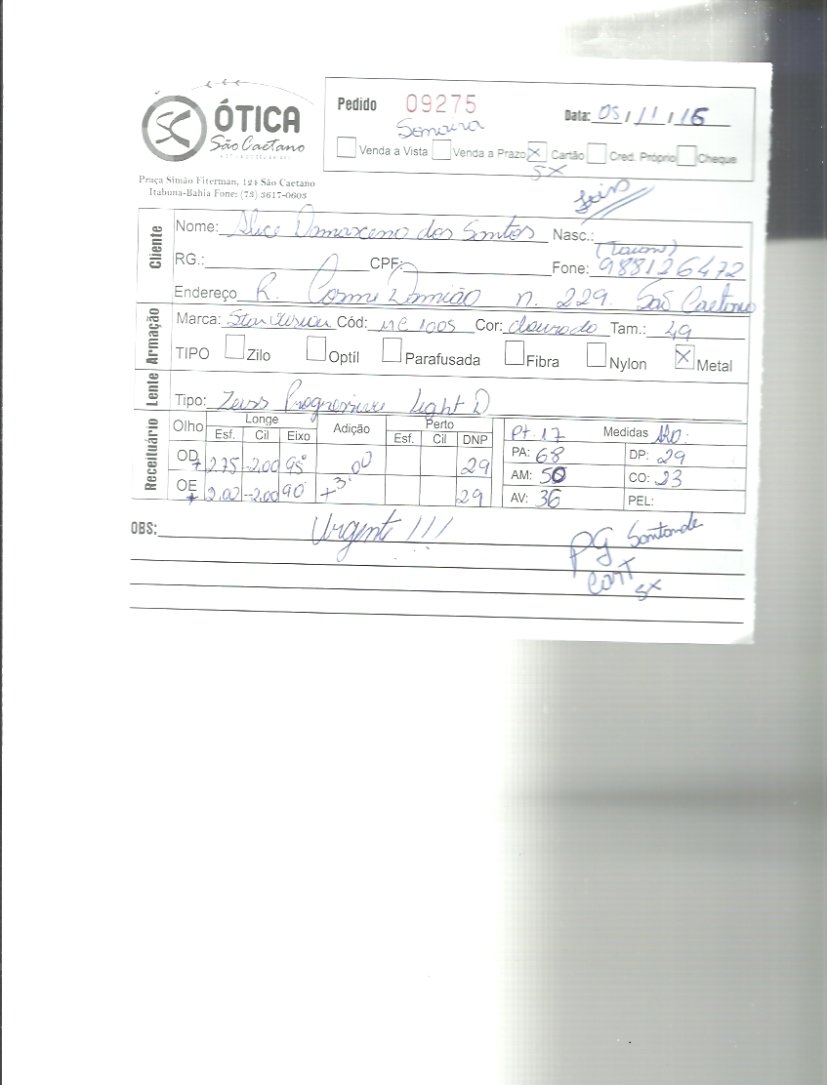 ÓTICA
São Caetano
Praça Simão Fiterman, 124 São Caetano
Itabuna-Bahia Fone: (73) 3617-0605
Pedido 09275 Data: 05/11/16
Venda a Vista Venda a Prazo X Cartão Cred. Próprio Cheque
5x
Cliente
Nome: Alice Damasceno dos Santos Nasc.:
RG.: CPF: Fone: 988126472
Endereço R. Cosme Damião n. 229. São Caetano
Armação
Marca: Cód: MC 1005 Cor: dourado Tam.: 49
TIPO Zilo Optil Parafusada Fibra Nylon X Metal
Lente
Tipo: Zeiss Progressive Light D
Receituário
Olho Longe Adição Perto Pt. 17 Medidas
Esf. Cil Eixo Esf. Cil DNP
OD + 2.75 -2.00 95° 29 PA: 68 DP: 29
OE + 2.00 -2.00 90 +3.00 29 AM: 50 CO: 23
AV: 36 PEL:
OBS: Urgente !!!
PG
5x